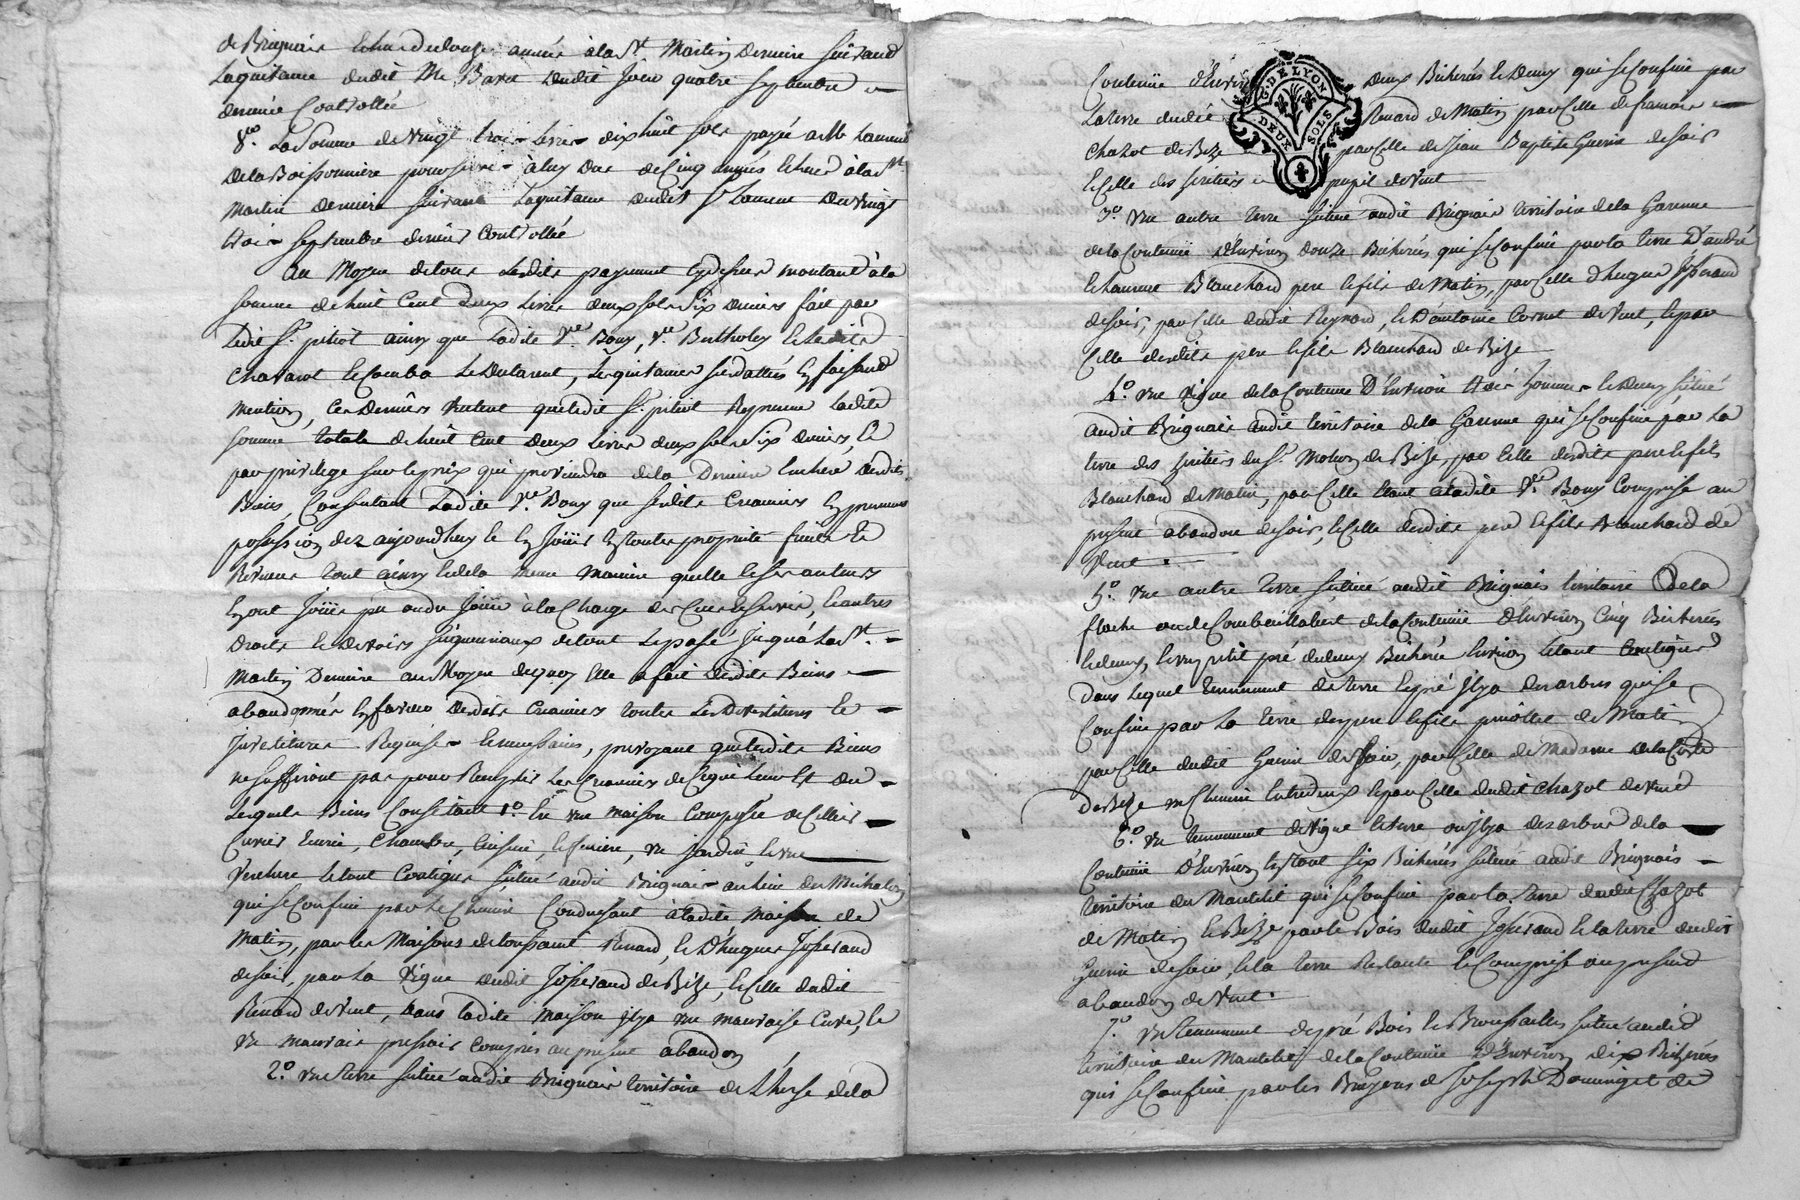 de Brignais Echus de douze années à la St Martin derniere suivant
la quittance dudit Me dudit Jour quatre septembre
derniée Controllée
8.o La somme de vingt trois livres dix huit sols payée a Mr Laurent
de la Boissonniere pour servis à luy dus de Cinq années Echues à la St
Martin derniere suivant la quittance dudit Sr Laurent du vingt
trois septembre dernier Controllée
Au Moyen de tous lesdits payement cy dessus montant à la
somme de huit Cent deux livres deux sols six deniers fait par
Ledit Sr pitiot ainsy que Ladite Ve Bouy, Ve Bertholey et lesdits
Chavanot et Combe Le Declarent, les quittances susdattées En faisant
mention, Ces Derniers veulent que ledit Sr pitiot Reprenne Ladite
somme totale de huit Cent deux livres deux sols six deniers, Et
par privilege sur le prix qui proviendra de la Derniere Enchere desdits
Biens, Consentant Ladite Ve Bouy que susdits Creanciers En prennent
possession dez aujourdhuy et En Jouir En toutte propriété fruits et
Revenus tout ainsy et de la meme maniere qu'elle et ses auteurs
En ont Joüir pu ou du Joüir à la Charge des Cens et servis, et autres
Droits et devoirs seigneuriaux de tout Le passé Jusqu'à La St.
Martin Derniere au Moyen de quoy Elle a fait desdits Biens
abandonnés En faveur desdits Creanciers touttes Les Devestitures et
Jnvestitures Requises et necessaires, prevoyant que lesdits Biens
ne suffiront pas pour Remplir Les Creanciers de Ce qui Leur Est du
Lesquels Biens Consistent 1.o En une maison Composée de Cellier
Cuvier Ecurie, Chambre, Cuisine, et feniere, un jardin et une
Verchere le tout Contigus situé audit Brignais au lieu du Michalon
qui se Confine par Le Chemin Conduisant à ladite Maison de
Matin, par les Maisons de toussaint Renard, et D'hugues Josserand
de soir, par La Vigne dudit Josserand de Bize, et Celle dudit
Renard de Vent, Dans ladite maison il y a une mauvaise Cuve, et
un mauvais pressoir Compris au present abandon
2.o une terre située audit Brignais territoire de L'herse de la
Contenüe d'Environ deux Bicherés et Demy qui se Confine par
La terre dudit Renard de Matin par Celle de francois
Chazot de Bize par Celle de Jean Baptiste Guerin de soir
et Celle des heritiers pupil de Vent
3.o une autre terre située audit Brignais territoire de la Garenne
de la Contenüe D'Environ douze Bicherés qui se Confine par la terre D'andré
et Laurent Blanchard pere et fils de Matin, par Celle d'hugues Josserand
de soir, par Celle dudit Reynard, et D'antoine Cornet de Vent, et par
Celle desdits pere et fils Blanchard de Bize
4.o une Vigne de la Contenue D'Environ trois hommes et Demy située
audit Brignais audit territoire de la Garenne qui se Confine par La
terre des heritiers du Sr. de Bize, par Celle desdits pere et fils
Blanchard de Matin, par Celle Etant à ladite Ve Bouy Comprise au
present abandon de soir, et Celle desdits pere et fils Blanchard de
Vent
5.o une autre terre située audit Brignais territoire De la
flache ou de Combeuillabert de la Contenüe D'Environ Cinq Bicherés
et demy, et un petit pré de demy Bicherée Environ le tout Contigus
dans Lequel tennement de terre et pré Jl y a des arbres qui se
Confine par La terre des pere et fils de Matin
par Celle dudit Guerin de soir, par Celle de Madame de la Coste
de Bize un Chemin Entredeux et par Celle dudit Chazot de vent
6.o un tennement de Vigne et terre ou Jl y a des arbres de la
Contenüe d'Environ En tout six Bicherés situé audit Brignais
territoire du Manteliet qui se Confine par la terre dudit Chazot
de Matin et Bize par le Bois dudit Josserand et la terre dudit
Guerin de soir, et la terre Restante et Comprise au present
abandon de Vent.
7.o un tennement de pré Bois et Broussailles située audit
territoire du Manteliet de la Contenüe d'Environ dix Bicherés
qui se Confine par les Bruyeres de Joseph Dominget de
G. DE LYON
DEUX SOLS